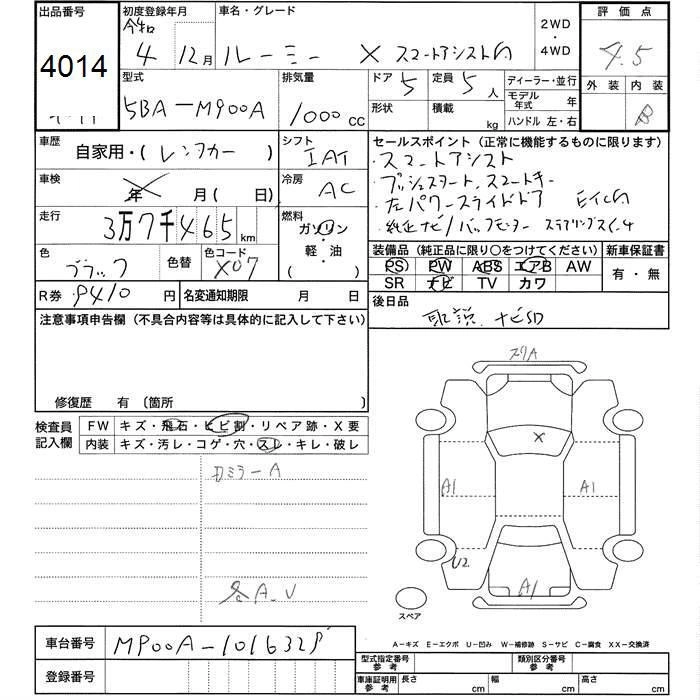 出品番号 初度登録年月 車名・グレード 2WD・4WD 評価点
4014 令和 4 12月 ルーミー X スマートアシスト 4.5
型式 排気量 ドア 5 定員 5人 ディーラー・並行 外装 内装
5BA-M900A 1000cc 形状 積載 kg モデル年式 年 B
ハンドル 左・右
車歴 自家用・(レンタカー) シフト IAT セールスポイント(正常に機能するものに限ります)
・スマートアシスト
車検 年 月(日) 冷房 AC ・プッシュスタート、スマートキー
・左パワースライドドア
走行 3万7千465km 燃料 ガソリン・軽油() ・純正ナビ/バックモニター
色 ブラック 色替 色コード X07 装備品(純正品に限り○をつけてください) 新車保証書
PS PW ABS エアB AW 有・無
SR ナビ TV カワ
R券 9410円 名変通知期限 月 日 後日品
注意事項申告欄(不具合内容等は具体的に記入して下さい) 取説、ナビSD
修復歴 有(箇所
検査員記入欄 FW キズ・飛石・ヒビ割・リペア跡・X要
内装 キズ・汚レ・コゲ・穴・スレ・キレ・破レ
スリA
X
A1 A1
U2
A1
各A、U
スペア
車台番号 A-キズ E-エクボ U-凹み W-補修跡 S-サビ C-腐食 XX-交換済
登録番号 型式指定番号 参考 類別区分番号 参考
車庫証明用 参考 長さ cm 幅 cm 高さ cm